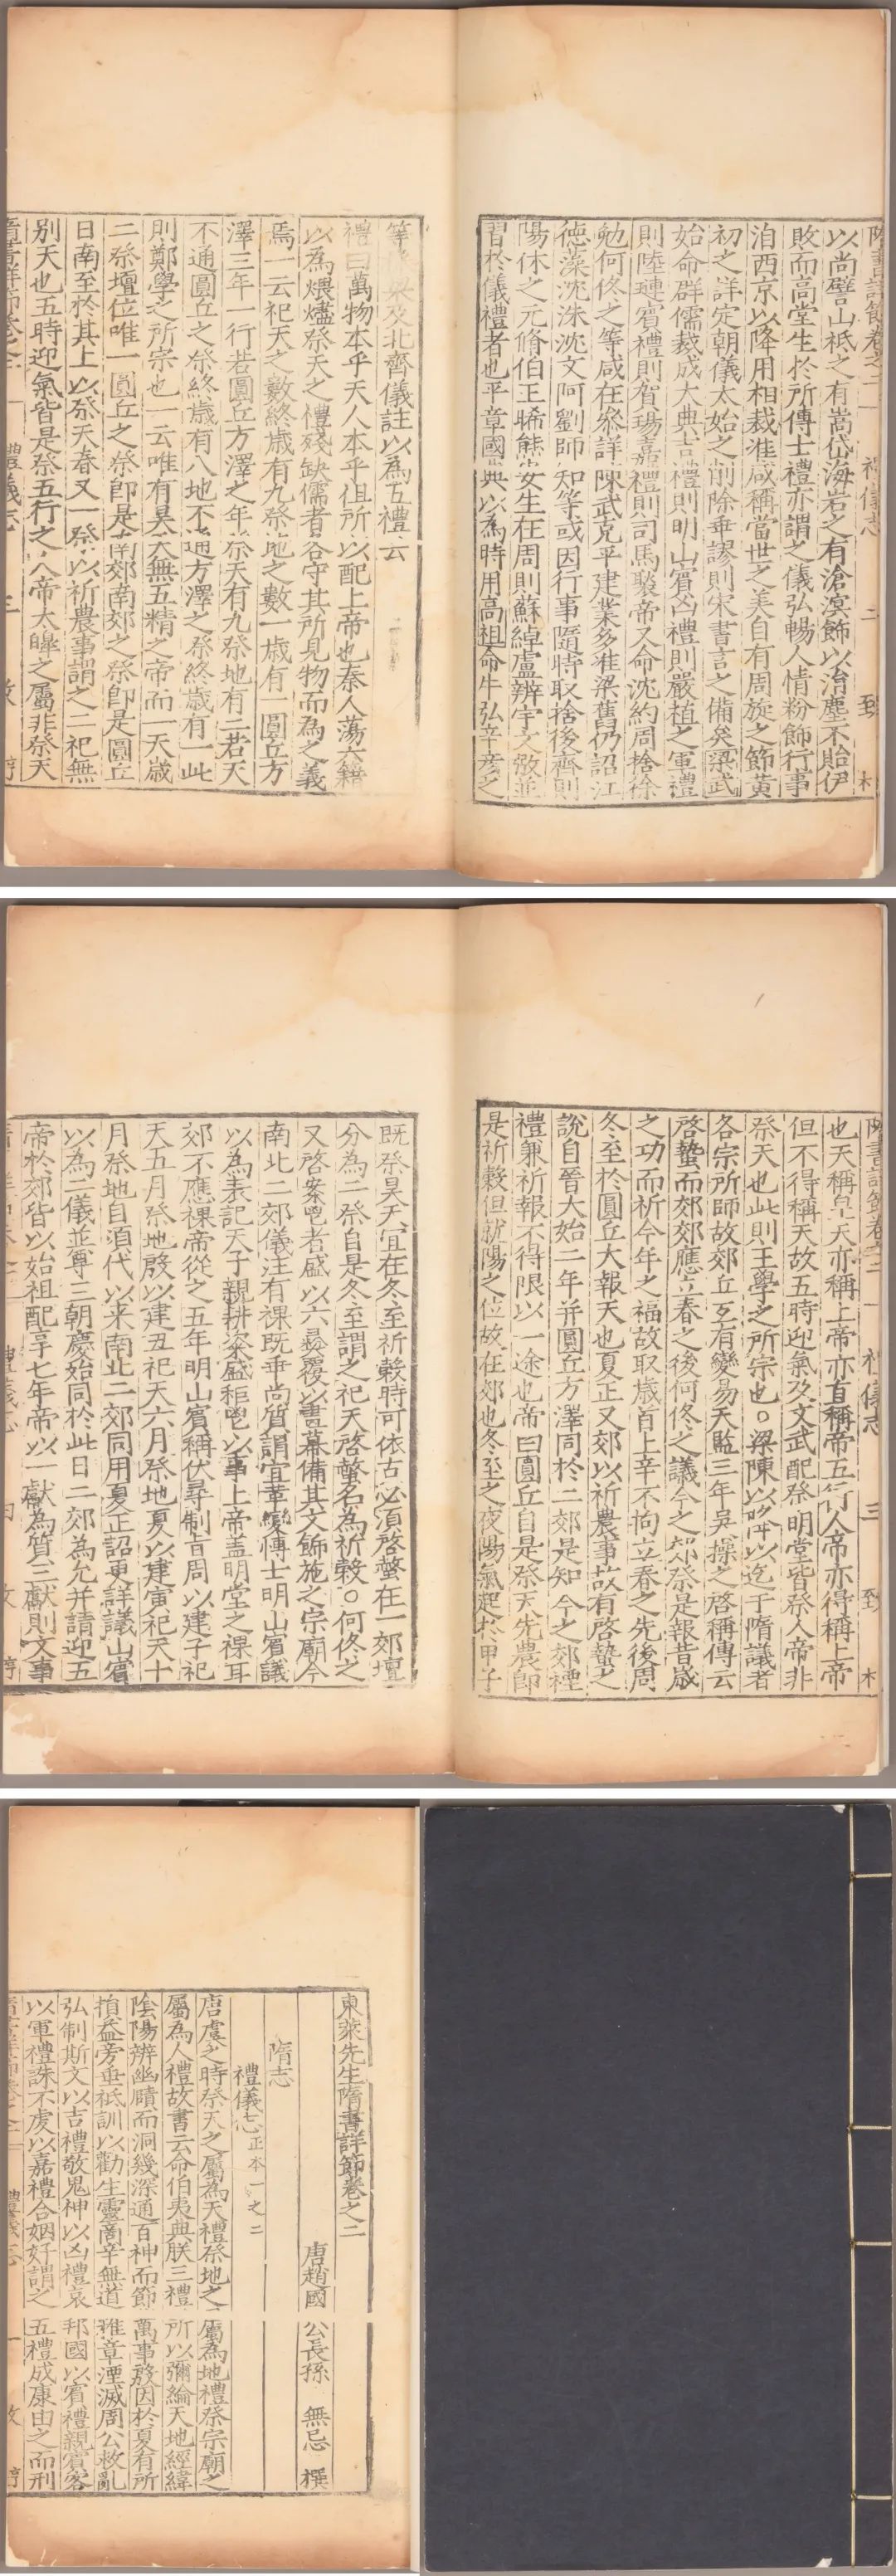 隋書詳節卷之二 禮儀志 二
以尚譬山祗之有嵩岱海若之有滄溟飾以涓塵不貽伊
敗而高堂生於所傳士禮亦謂之儀弘暢人情粉飾行事
洎西京以降用相裁准咸稱當世之美自有周旋之節黃
初之詳定朝儀太始之削除乖謬則宋書言之備矣梁武
始命群儒裁成大典吉禮則明山賓凶禮則嚴植之軍禮
則陸璉賓禮則賀瑒嘉禮則司馬褧帝又命沈約周捨徐
勉何佟之等咸在參詳陳武克平建業多准梁舊仍詔江
德藻沈洙沈文阿劉師知等或因行事隨時取捨後齊則
陽休之元脩伯王晞熊安生在周則蘇綽盧辨宇文㢸並
習於儀禮者也平章國典以為時用高祖命牛弘辛彥之
等 梁及北齊儀註以為五禮云
禮曰萬物本乎天人本乎徂所以配上帝也秦人蕩六籍
以為煨燼祭天之禮殘缺儒者各守其所見物而為之義
焉一云祀天之數終歲有九祭地之數一歲有二圓丘方
澤三年一行若圓丘方澤之年祭天有九祭地有二若天
不通圓丘之祭終歲有八地不通方澤之祭終歲有一此
則鄭學之所宗也一云唯有昊天無五精之帝而一天歲
二祭壇位唯一圓丘之祭即是南郊南郊之祭即是圓丘
日南至於其上以祭天春又一祭以祈農事謂之二祀無
別天也五時迎氣皆是祭五行之人帝太皞之屬非祭天
隋書詳節卷之二 禮儀志 三
也天稱皇天亦稱上帝亦直稱帝五行人帝亦得稱上帝
但不得稱天故五時迎氣及文武配祭明堂皆祭人帝非
祭天也此則王學之所宗也○梁陳以降以迄于隋議者
各宗所師故郊丘互有變易天監三年吳操之啓稱傳云
啓蟄而郊郊應立春之後何佟之議今之郊祭是報昔歲
之功而祈今年之福故取歲首上辛不拘立春之先後周
冬至於圓丘大報天也夏正又郊以祈農事故有啓蟄之
說自晉大始二年并圓丘方澤同於二郊是知今之郊禋
禮兼祈報不得限以一途也帝曰圓丘自是祭天先農即
是祈穀但就陽之位故在郊也冬至之夜陽氣起於甲子
既祭昊天宜在冬至祈穀時可依古必須啓蟄在一郊壇
分為二祭自是冬至謂之祀天啓蟄名為祈穀○何佟之
又啓案鬯者盛以六彞覆以畫冪備其文飾施之宗廟今
南北二郊儀注有祼既乖尚質謂宜革變慱士明山賓議
以為表記天子親耕粢盛秬鬯以事上帝盖明堂之祼耳
郊不應祼帝從之五年明山賓稱伏尋制旨周以建子祀
天五月祭地殷以建丑祀天六月祭地夏以建寅祀天十
月祭地自頃代以来南北二郊同用夏正詔更詳議山賓
以為二儀並尊三朝慶始同於此日二郊為允并請迎五
帝於郊皆以始祖配享七年帝以一獻為質三獻則文事
東萊先生隋書詳節卷之二
唐趙國公長孫 無忌 撰
隋志
禮儀志正本一之二
唐虞之時祭天之屬為天禮祭地之屬為地禮祭宗廟之
屬為人禮故書云命伯夷典朕三禮所以彌綸天地經緯
陰陽辨幽賾而洞幾深通百神而節萬事殷因於夏有所
損益旁垂祗訓以勸生靈商辛無道雅章湮滅周公救亂
弘制斯文以吉禮敬鬼神以凶禮哀邦國以賓禮親賓客
以軍禮誅不虔以嘉禮合姻好謂之五禮成康由之而刑